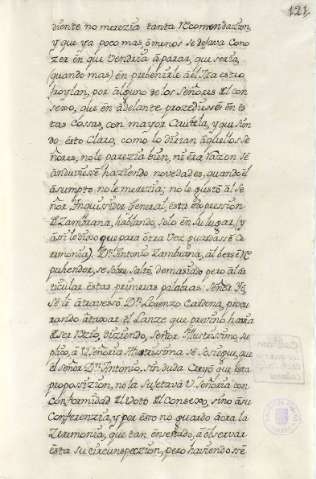 121
diente no merezia tanta Recomendazion,
y que ya poco mas o menos se dejava cono
zer en que vendria a parar, que seria,
quando mas) en prebenirle al Maestro
froylan, por alguno de los Señores del con
sejo, que en adelante prozediese en es
tas cossas, con mayor Cautela, y que sien
do esto Claro, como lo dirian aquellos Se
ñores, no le parezia bien, ni era razon se
anduviese haziendo novedades, quando el
asumpto no le merezia; no le gustó al Se
ñor Inquisidor General, esta
Zambrana, hablando, solo en su lugar (y
assi le dixo que para otra Voz guardase ce
rimonia). Dn. Antonio Zambrana, al berse Re
prehender, se sobre saltó, demasiado pero al ar
ticular estas primeras palabras: Señor Yo,
Se le atravesso Dn. Lorenzo Cardona, procu
rando atajar el Lanze que
diziendo, Señor Illustrisimo, su
plico, a V. Señoria Illustrissima se sosiegue, que
el señor Dn. Antonio, sin duda Creyó que esta
proposizion, no la sujetava V. Señoria con
conformidad al Voto del Consexo, sino a su
Conferenzia, y por esto no guardó aora la
Zeremonia, que tan enseñado, a observar
esta su circunspeccion, pero haviendose